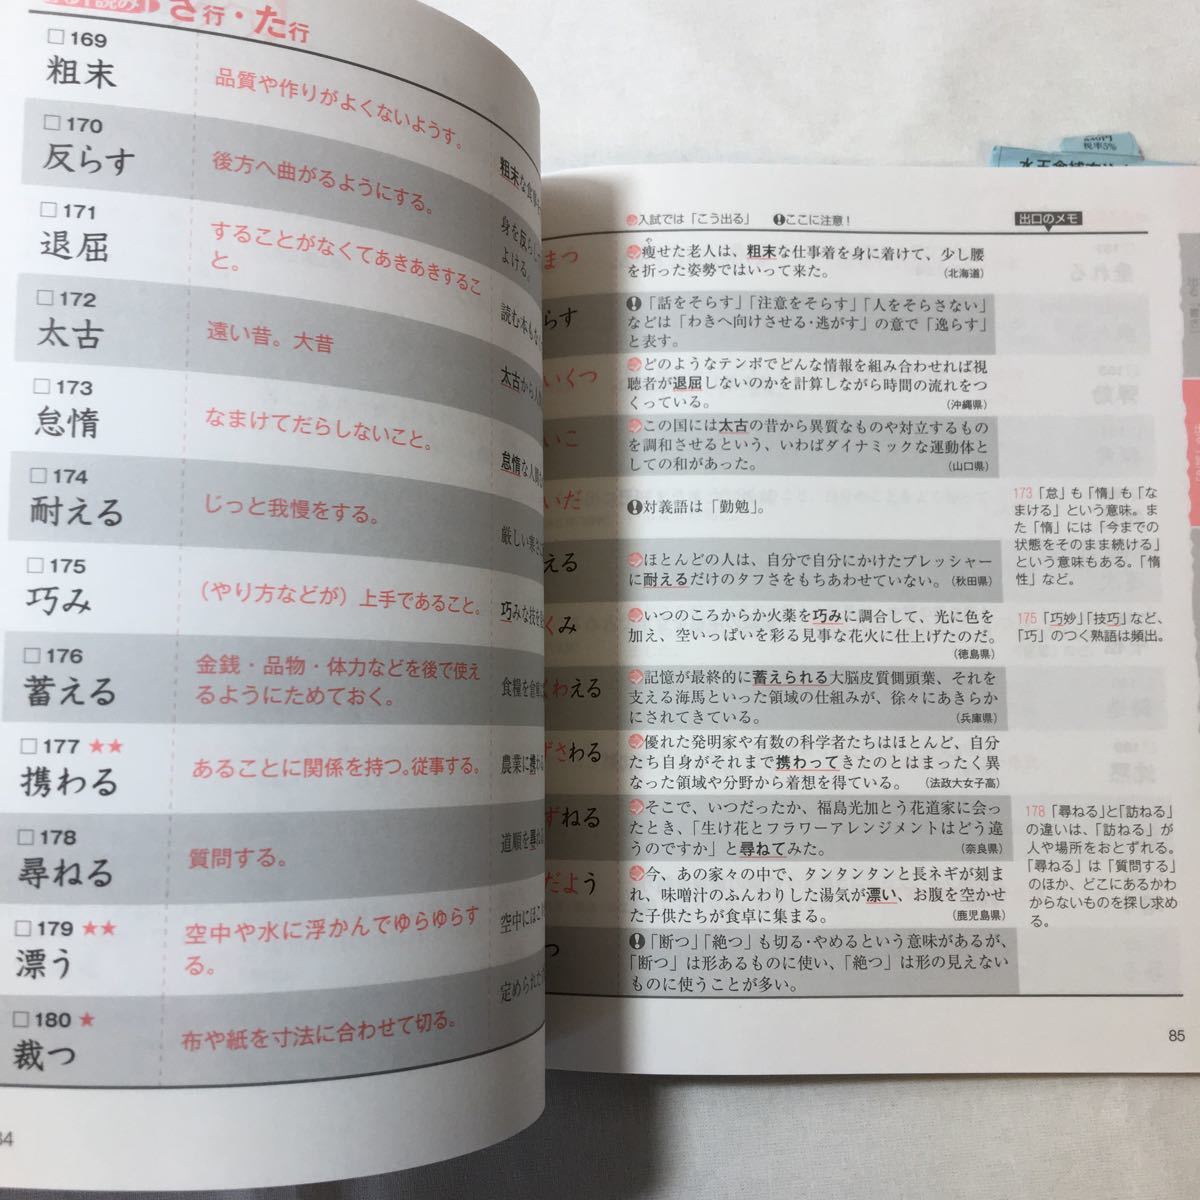 さ行・た行
□169
粗末
品質や作りがよくないようす。
粗末な食事
□170
反らす
後方へ曲がるようにする。
身を反らして
よける。
□171
退屈
することがなくてあきあきするこ
と。
読む本もな
□172
太古
遠い昔。大昔
太古から人
□173
怠惰
なまけてだらしないこと。
怠惰な人間
□174
耐える
じっと我慢をする。
厳しい寒さに
□175
巧み
(やり方などが)上手であること。
巧みな技を
□176
蓄える
金銭・品物・体力などを後で使え
るようにためておく。
食糧を
□177 ★★
携わる
あることに関係を持つ。従事する。
農業に携わ
□178
尋ねる
質問する。
道順を尋ね
□179 ★★
漂う
空中や水に浮かんでゆらゆらす
る。
空中にほこ
□180 ★
裁つ
布や紙を寸法に合わせて切る。
定められた
84
220円
税率5%
入試では「こう出る」 !ここに注意!
出口のメモ
まつ
痩せた老人は、粗末な仕事着を身に着けて、少し腰
や
を折った姿勢ではいって来た。 (北海道)
らす
!「話をそらす」「注意をそらす」「人をそらさない」
などは「わきへ向けさせる・逃がす」の意で「逸らす」
と表す。
いくつ
どのようなテンポでどんな情報を組み合わせれば視
聴者が退屈しないのかを計算しながら時間の流れをつ
くっている。 (沖縄県)
いこ
この国には太古の昔から異質なものや対立するもの
を調和させるという、いわばダイナミックな運動体と
しての和があった。 (山口県)
いだ
!対義語は「勤勉」。
173「怠」も「惰」も「な
まける」という意味。ま
た「惰」には「今までの
状態をそのまま続ける」
という意味もある。「惰
性」など。
える
ほとんどの人は、自分で自分にかけたプレッシャー
に耐えるだけのタフさをもちあわせていない。 (秋田県)
くみ
いつのころからか火薬を巧みに調合して、光に色を
加え、空いっぱいを彩る見事な花火に仕上げたのだ。
(徳島県)
175「巧妙」「技巧」など、
「巧」のつく熟語は頻出。
くわえる
記憶が最終的に蓄えられる大脳皮質側頭葉、それを
支える海馬といった領域の仕組みが、徐々にあきらか
にされてきている。 (兵庫県)
ずさわる
優れた発明家や有数の科学者たちはほとんど、自分
たち自身がそれまで携わってきたのとはまったく異
なった領域や分野から着想を得ている。 (法政大女子高)
ずねる
そこで、いつだったか、福島光加とう花道家に会っ
たとき、「生け花とフラワーアレンジメントはどう違
うのですか」と尋ねてみた。 (奈良県)
178「尋ねる」と「訪ねる」
の違いは、「訪ねる」が
人や場所をおとずれる。
「尋ねる」は「質問する」
のほか、どこにあるかわ
からないものを探し求め
る。
だよう
今、あの家々の中で、タンタンタンと長ネギが刻ま
れ、味噌汁のふんわりした湯気が漂い、お腹を空かせ
た子供たちが食卓に集まる。 (鹿児島県)
つ
!「断つ」「絶つ」も切る・やめるという意味があるが、
「断つ」は形あるものに使い、「絶つ」は形の見えない
ものに使うことが多い。
85